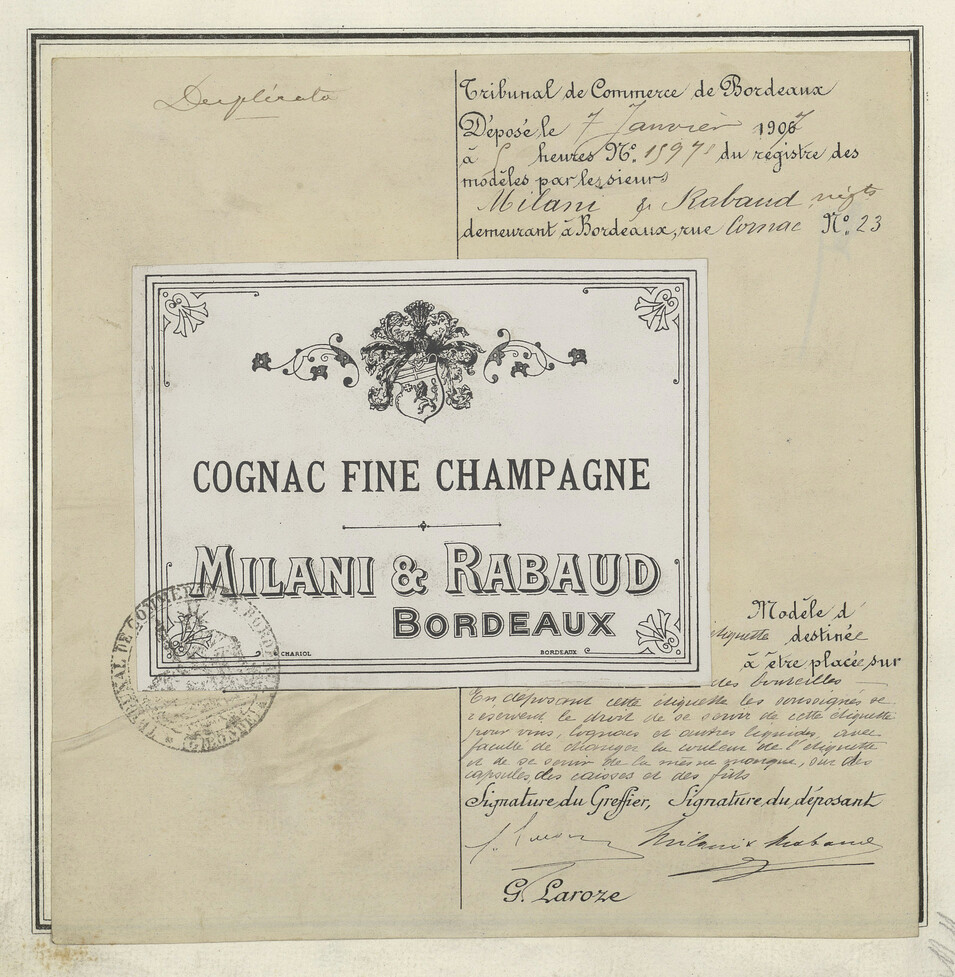 Duplicata
Tribunal de Commerce de Bordeaux
Déposé le 7 Janvier 1907
à heures N° du registre des
modèles par les sieurs
Milani & Rabaud négts
demeurant à Bordeaux, rue Cornac N° 23
COGNAC FINE CHAMPAGNE
MILANI & RABAUD
BORDEAUX
CHARIOL
BORDEAUX
TRIBUNAL DE COMMERCE DE BORDEAUX
(GIRONDE)
Modèle d'
étiquette destinée
à être placée sur
des bouteilles
En déposant cette étiquette les soussignés se
réservent le droit de se servir de cette étiquette
pour vins, cognacs et autres liquides, avec
faculté de changer la couleur de l'étiquette
et de se servir de la même marque, sur des
capsules, des caisses et des fûts
Signature du Greffier, Signature du déposant
Milani & Rabaud
G. Laroze